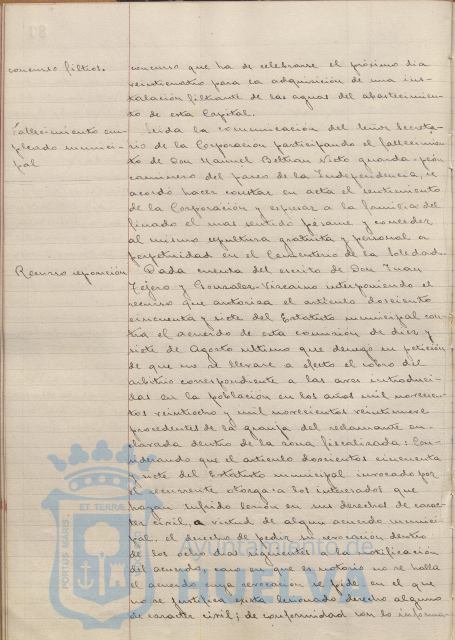 concurso filtros.
concurso que ha de celebrarse el próximo dia
veinticuatro para la adquisición de una ins-
talación filtrante de las aguas del abastecimien-
to de esta Capital.
Fallecimiento em-
pleado munici-
pal
Leida la comunicación del Señor Secreta-
rio de la Corporación participando el fallecimien-
to de Don Manuel Beltran Nieto guarda-peón
caminero del paseo de la Independencia, se
acordó hacer constar en acta el sentimiento
de la Corporación y expresar a la familia del
finado el mas sentido pésame y conceder
al mismo sepultura gratuita y personal a
perpetuidad en el Cementerio de la Soledad.
Recurso reposición
Dada cuenta del escrito de Don Juan
Tejero y Gonzalez-Vizcaino interponiendo el
recurso que autoriza el articulo doscientos
cincuenta y siete del Estatuto municipal con-
tra el acuerdo de esta comisión de diez y
siete de Agosto ultimo que denegó su petición
de que no se llevare a efecto el cobro del
arbitrio correspondiente a las aves introduci-
das en la población en los años mil novecien-
tos veintiocho y mil novecientos veintinueve
procedentes de la granja del reclamante en-
clavada dentro de la zona fiscalizada: Con-
siderando que el articulo doscientos cincuenta
y siete del Estatuto municipal invocado por
el recurrente otorga a los interesados que
hayan sufrido lesión en sus derechos de carac-
ter civil, a virtud de algun acuerdo munici-
pal, el derecho de pedir su revocación dentro
de los ocho dias siguientes a la notificación
del acuerdo, caso en que es notorio no se halla
el acuerdo cuya revocación se pide, en el que
no se justifica exista lesionado derecho alguno
de caracter civil; de conformidad con lo informa-
PORTUS MARIS ET TERRAE
Ayuntamiento de